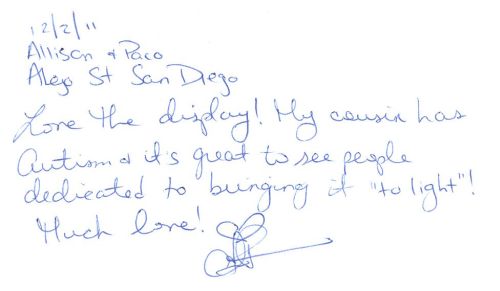 12/2/11
Allison & Paco
St San Diego
Love the display! My cousin has
Autism & it's great to see people
dedicated to bringing it "to light"!
Much love!